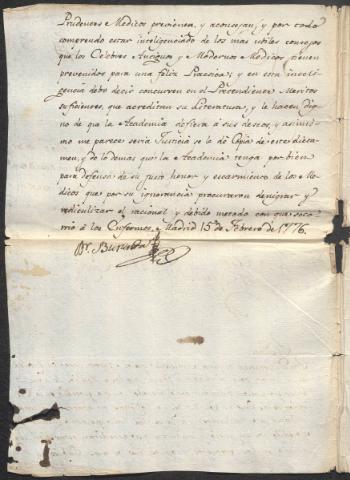 Prudentes Medicos previenen, y aconsejan; y por todo
comprendo estar inteligenciado de los mas utiles consejos
que los Celebres Antiguos y Modernos Medicos tienen
prevenidos para una feliz Practica; y en esta inteli-
gencia debo decir concurren en el Pretendiente Meritos
suficientes, que acreditan su Literatura, y le hacen dig-
no de que la Academia defiera á sus deseos, y asimis-
mo me parece seria Justicia se le dé Copia de este dicta-
men, y de lo demas que la Academia tenga por bien
para defensa de su justo honor y escarmiento de los Me-
dicos que por su ignorancia procuraron denigrar y
rediculizar el racional y debido metodo con que soco-
rrió á los Enfermos. Madrid 15 de Febrero de 1776.
Dr.